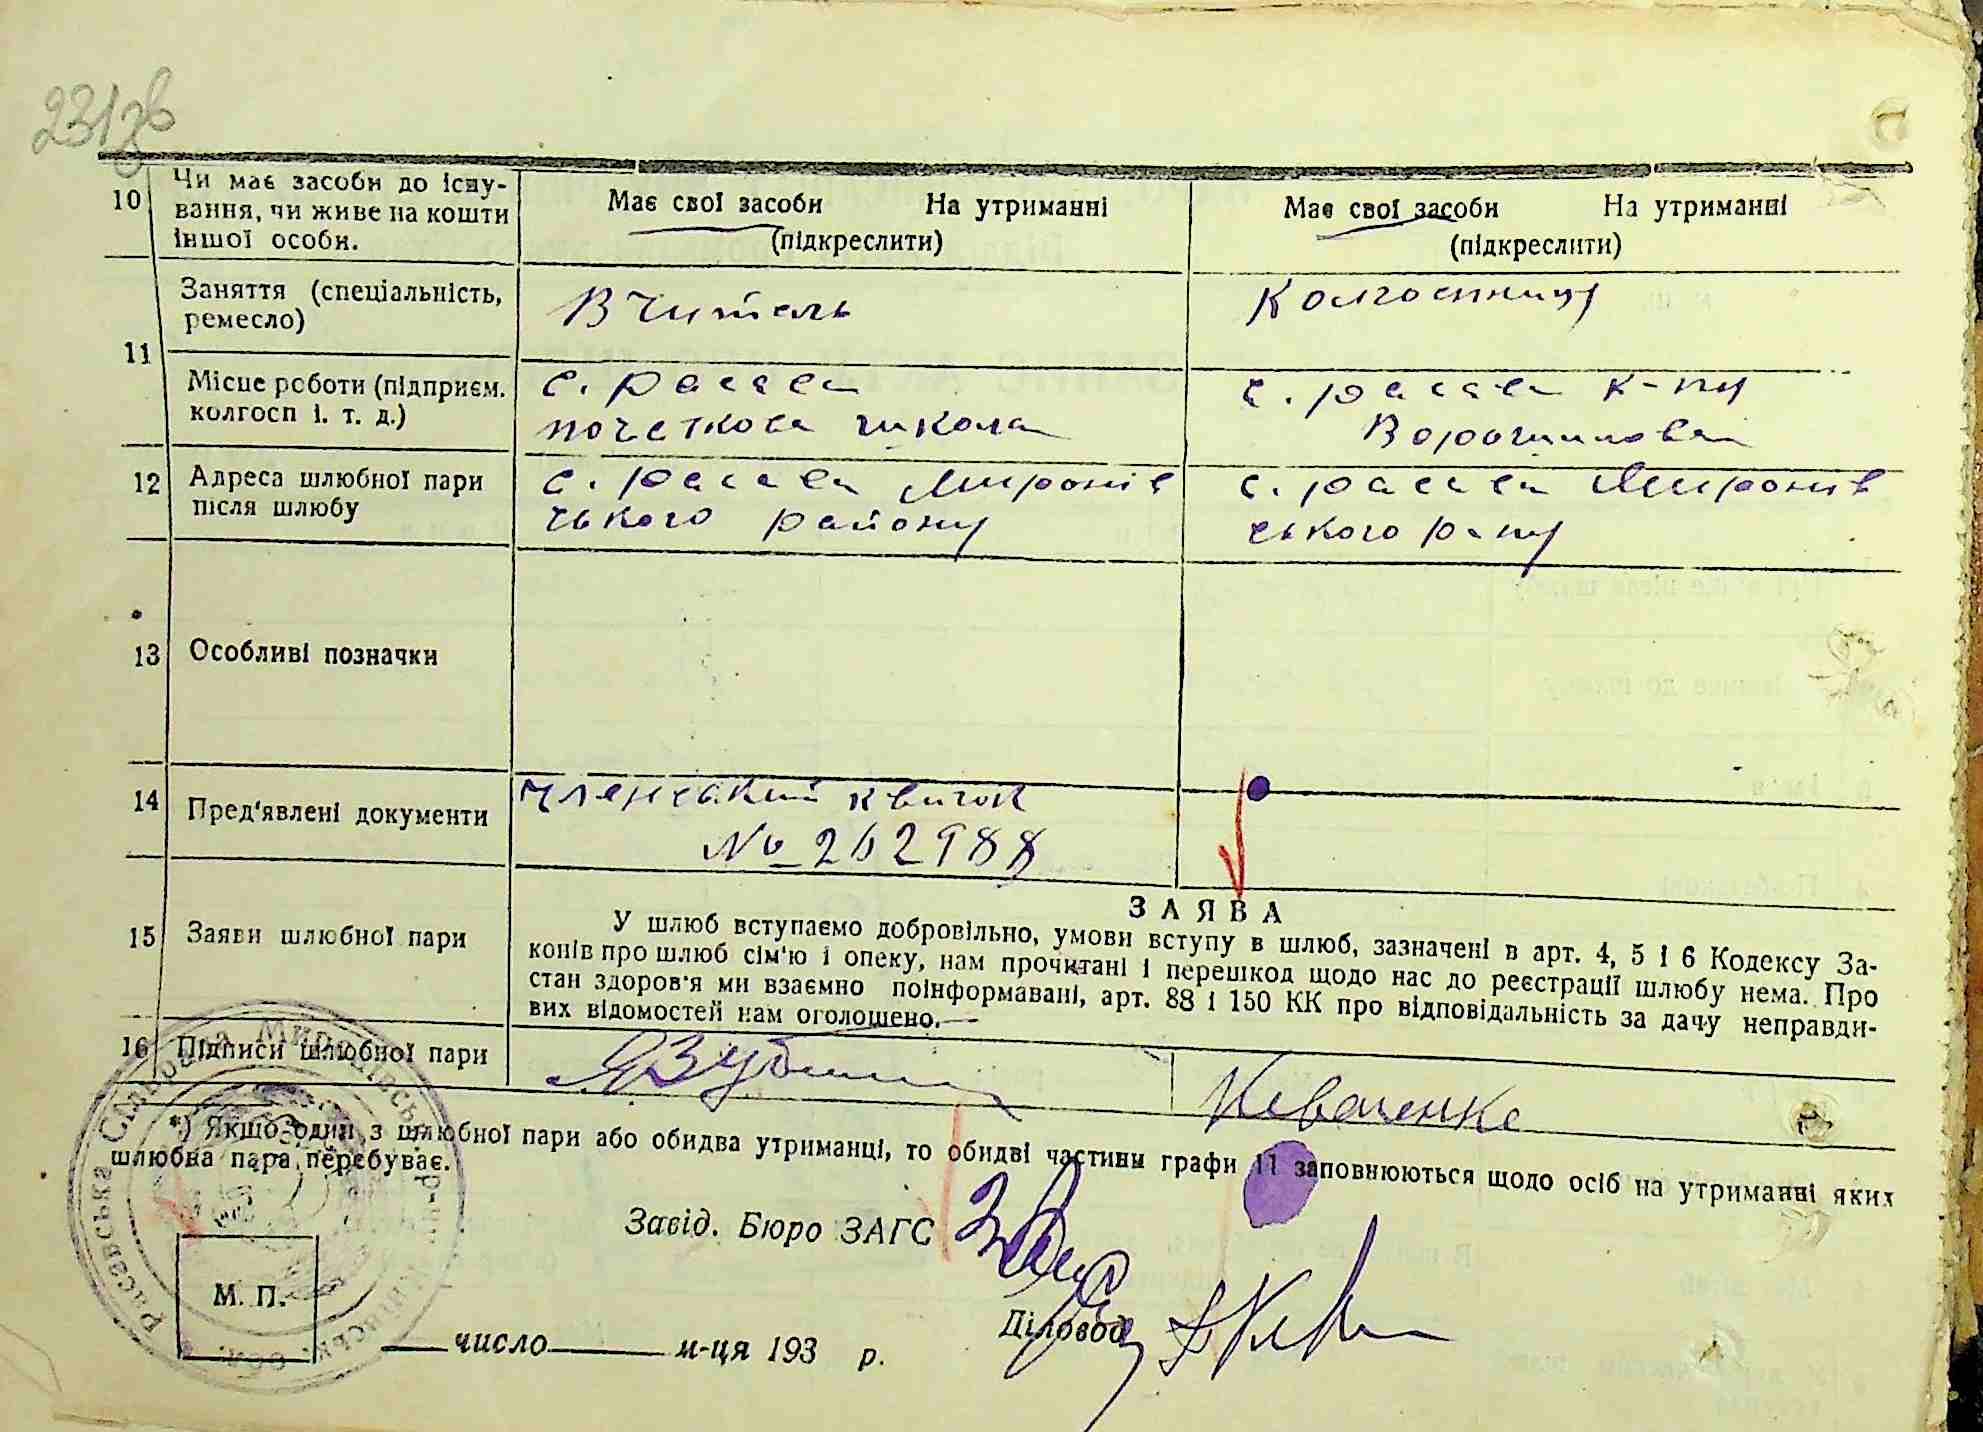 231зв
10 Чи має засоби до існу-
вання, чи живе на кошти
іншої особи.
Має свої засоби На утриманні
(підкреслити)
Має свої засоби На утриманні
(підкреслити)
11 Заняття (спеціальність,
ремесло)
Вчитель
Колгоспниця
Місце роботи (підприєм.
колгосп і. т. д.)
с. Расава
початкова школа
с. Расава к-пу
Ворошилова
12 Адреса шлюбної пари
після шлюбу
с. Расава Миронів
ського району
с. Расава Миронів
ського р-ну
13 Особливі позначки
14 Пред'явлені документи
Членський квиток
№ 262988
15 Заяви шлюбної пари
ЗАЯВА
У шлюб вступаємо добровільно, умови вступу в шлюб, зазначені в арт. 4, 5 і 6 Кодексу За-
конів про шлюб сім'ю і опеку, нам прочитані і перешкод щодо нас до реєстрації шлюбу нема. Про
стан здоров'я ми взаємно поінформавані, арт. 88 і 150 КК про відповідальність за дачу неправди-
вих відомостей нам оголошено.
16 Підписи шлюбної пари
*) Якщо один з шлюбної пари або обидва утриманці, то обидві частини графи 11 заповнюються щодо осіб на утриманні яких
шлюбна пара перебуває.
Завід. Бюро ЗАГС
Діловод
М. П.
число м-ця 193 р.
Расавська Сільрада Миронівськ. р-ну Київськ. обл.